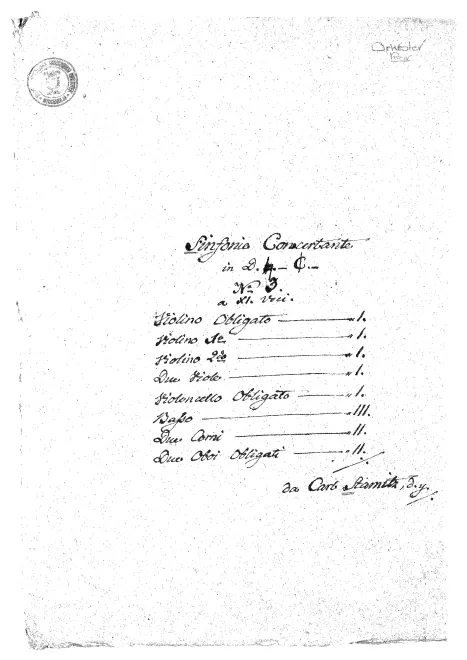 Orkester
Sinfonia Concertante
in D. – C. –
No 3.
a XI. voci.
Violino Obligato — " I.
Violino 1mo — " I.
Violino 2do — " I.
Due Viole — " I.
Violoncello Obligato — " I.
Basso — " III.
Due Corni — " II.
Due Oboi Obligati — " II.
da Carlo Stamitz, d. y.